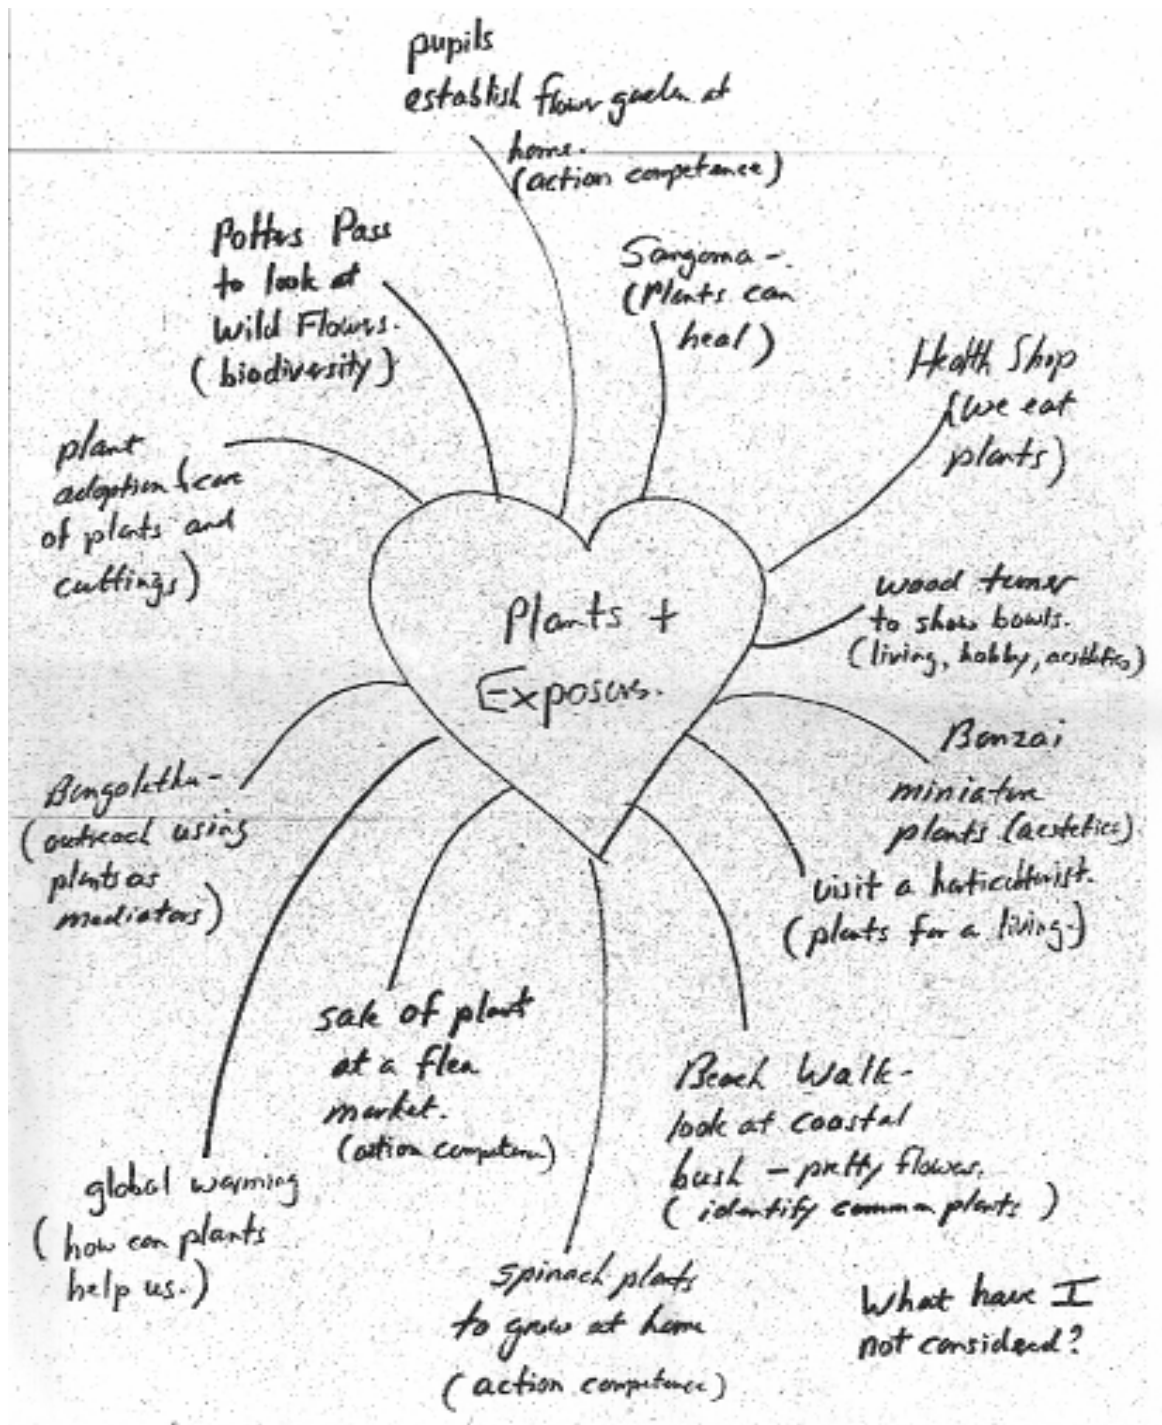 pupils
establish flower garden at
home.
(action competence)
Potters Pass
to look at
Wild Flowers.
(biodiversity)
Sangoma -
(Plants can
heal)
Health Shop
(we eat
plants)
plant
adoption (care
of plants and
cuttings)
wood turner
to show bowls.
(living, hobby, aesthetics)
Plants +
Exposure.
Bonzai
miniature
plants (aestetics)
Bongolethu -
(outreach using
plants as
mediators)
visit a horticulturist.
(plants for a living.)
sale of plant
at a flea
market.
(action competence)
Beach Walk -
look at coastal
bush - pretty flowers.
(identify common plants)
global warming
(how can plants
help us.)
spinach plants
to grow at home
(action competence)
What have I
not considered?